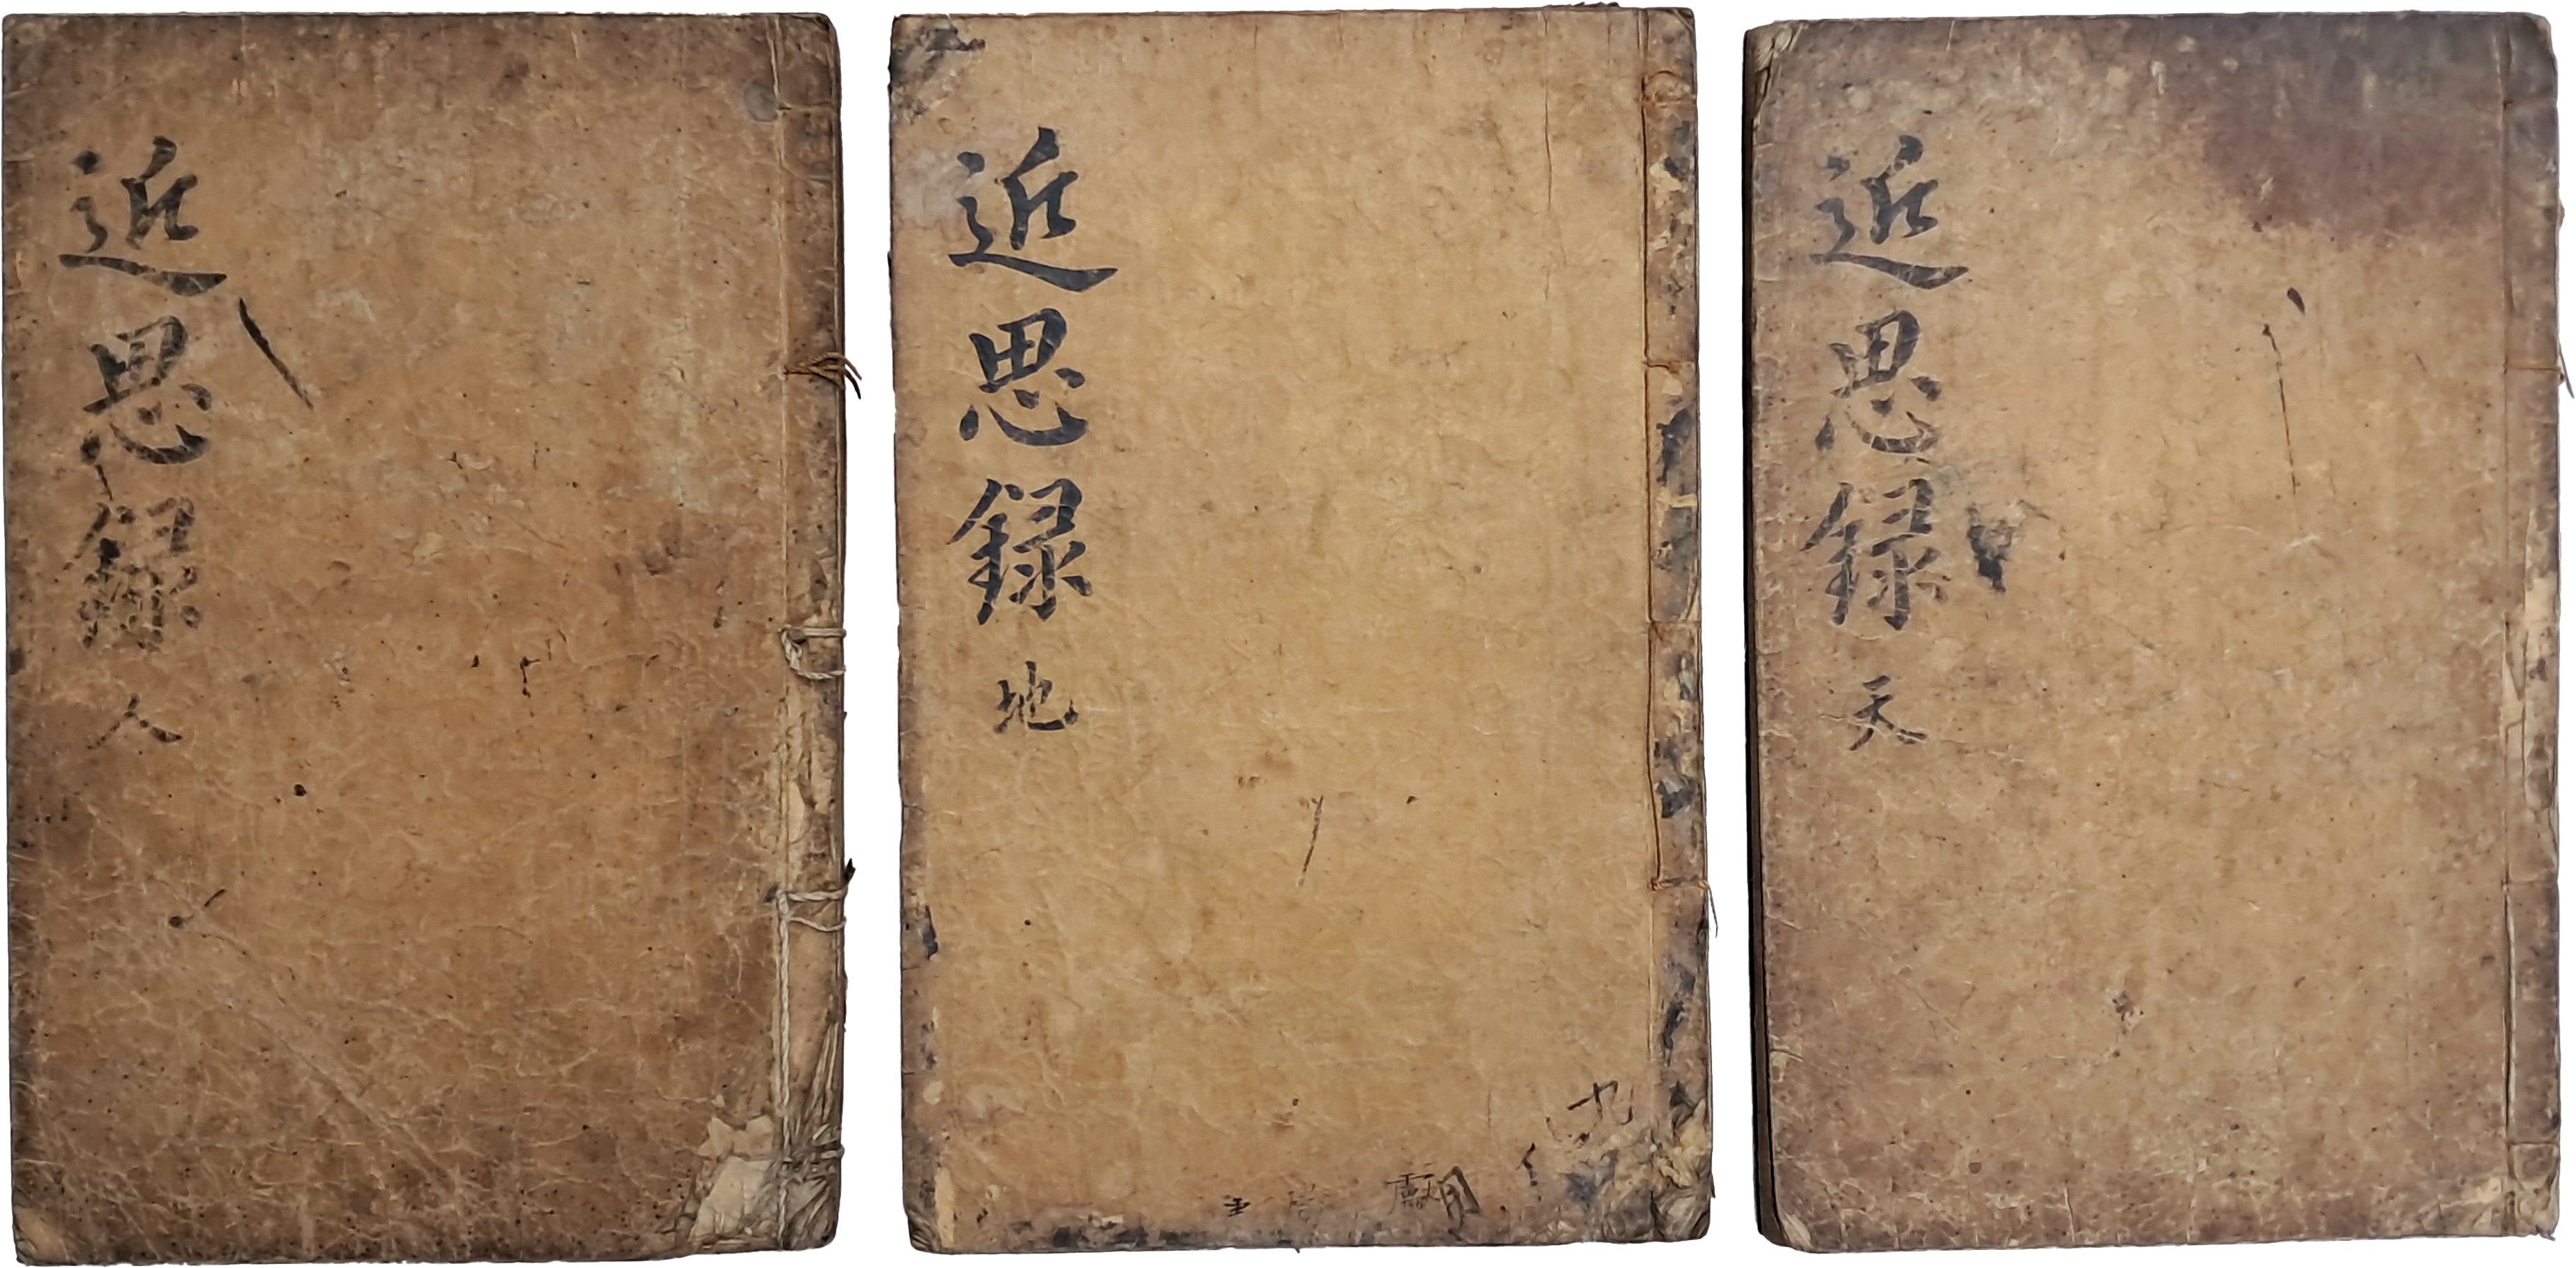 近思録天
近思録地
九
近思録人